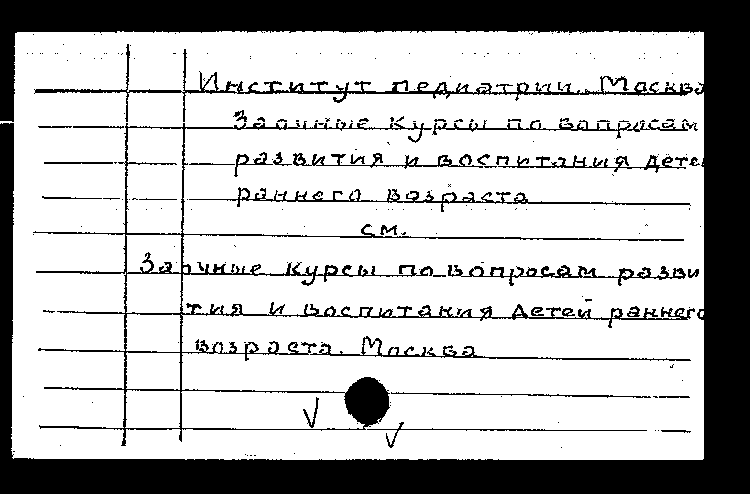 Институт педиатрии. Москва
Заочные курсы по вопросам
развития и воспитания дете
раннего возраста
см.
Заочные курсы по вопросам разви
тия и воспитания детей раннего
возраста. Москва